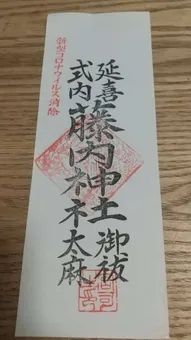 新型コロナウイルス消除
延喜
式内
藤内神社
御祓
太麻